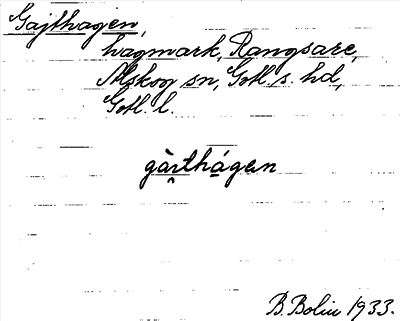 Gajthagen,
hagmark, Rangsare,
Alskog sn, Gotl. s. hd,
Gotl. l.
gàrthágen
B. Bolin 1933.